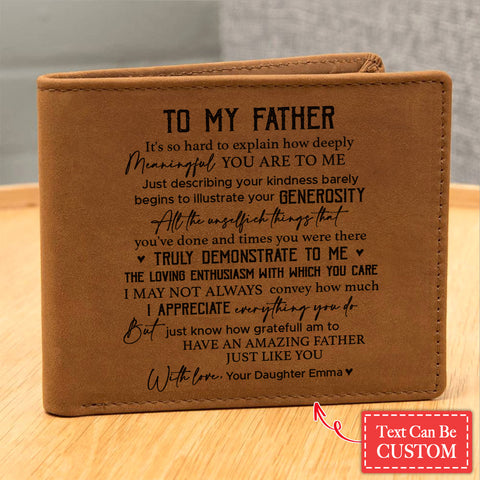 TO MY FATHER
It's so hard to explain how deeply
Meaningful YOU ARE TO ME
Just describing your kindness barely
begins to illustrate your GENEROSITY
All the unselfich things that
you've done and times you were there
♥ TRULY DEMONSTRATE TO ME ♥
THE LOVING ENTHUSIASM WITH WHICH YOU CARE
I MAY NOT ALWAYS convey how much
I APPRECIATE everything you do
But just know how gratefull am to
HAVE AN AMAZING FATHER
JUST LIKE YOU
With love, Your Daughter Emma ♥
Text Can Be
CUSTOM